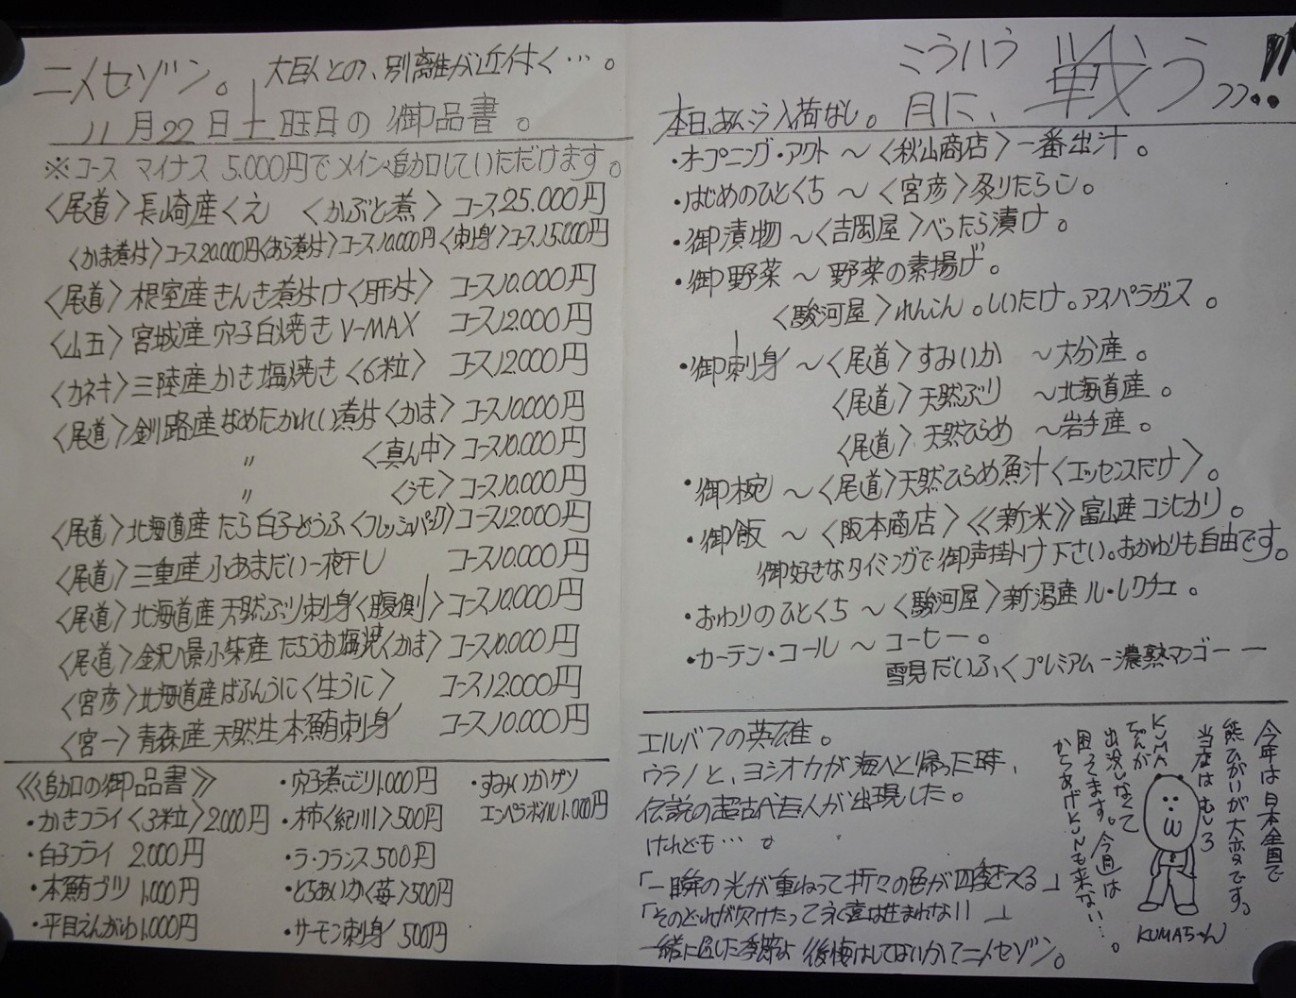 ニノセゾン。 大巨人との、別離が近付く…。
11月22日土曜日の御品書。
※コース マイナス 5.000円でメインへ追加していただけます。
〈尾道〉長崎産くえ 〈かぶと煮〉 コース25.000円
〈かま煮付〉コース20.000円〈あら煮付〉コース10.000円〈刺身〉コース15.000円
〈尾道〉根室産きんき煮付け〈肝付〉 コース10.000円
〈山五〉宮城産穴子白焼きV-MAX コース12.000円
〈カネキ〉三陸産かき塩焼き〈6粒〉 コース12.000円
〈尾道〉釧路産なめたがれい煮付〈かま〉コース10.000円
〃 〈真ん中〉コース10.000円
〃 〈シモ〉コース10.000円
〈尾道〉北海道産たら白子どうふ〈フレッシュパック〉コース12.000円
〈尾道〉三重産小あまだい一夜干し コース10.000円
〈尾道〉北海道産天然ぶり刺身〈腹側〉コース10.000円
〈尾道〉金沢八景小柴産たちうお塩焼〈かま〉コース10.000円
〈宮彦〉北海道産ばふんうに〈生うに〉 コース12.000円
〈宮一〉青森産天然生本鮪刺身 コース10.000円
《追加の御品書》
・かきフライ〈3粒〉2.000円
・白子フライ 2.000円
・本鮪ブツ 1.000円
・平目えんがわ1.000円
・穴子煮こごり1.000円
・柿〈紀川〉500円
・ラ・フランス500円
・とちあいか〈苺〉500円
・サーモン刺身 500円
・すみいかゲソ
エンペラボイル1.000円
こういう
本日、あんこう入荷なし。 月に、戦うっっ..!!
・オープニング・アクト〜〈秋山商店〉一番出汁。
・はじめのひとくち〜〈宮彦〉炙りたらこ。
・御漬物〜〈吉岡屋〉べったら漬け。
・御野菜〜野菜の素揚げ。
〈駿河屋〉れんこん。しいたけ。アスパラガス。
・御刺身〜〈尾道〉すみいか 〜大分産。
〈尾道〉天然ぶり 〜北海道産。
〈尾道〉天然ひらめ 〜岩手産。
・御椀〜〈尾道〉天然ひらめ魚汁〈エッセンスだけ〉。
・御飯〜〈阪本商店〉《新米》富山産コシヒカリ。
御好きなタイミングで御声掛け下さい。おかわりも自由です。
・おわりのひとくち〜〈駿河屋〉新潟産ル・レクチェ。
・カーテン・コール〜コーヒー。
雪見だいふく プレミアムー濃熟マンゴーー
エルバフの英雄。
ウラノと、ヨシオカが海へと帰った時、
伝説の超古代巨人が出現した。
けれども…。
「一瞬の光が重なって折々の色が四季を支える」
「そのどれが欠けたって永遠は生まれない」
一緒に過した季節よ 後悔はしてないか?ニノセゾン。
今年は日本全国で
熊ひがいが大変です。
当店はむしろ
KUMA
ちゃんが
出没しなくて
困ってます。今回は
からあげKUNも来ない…。
KUMAちゃん